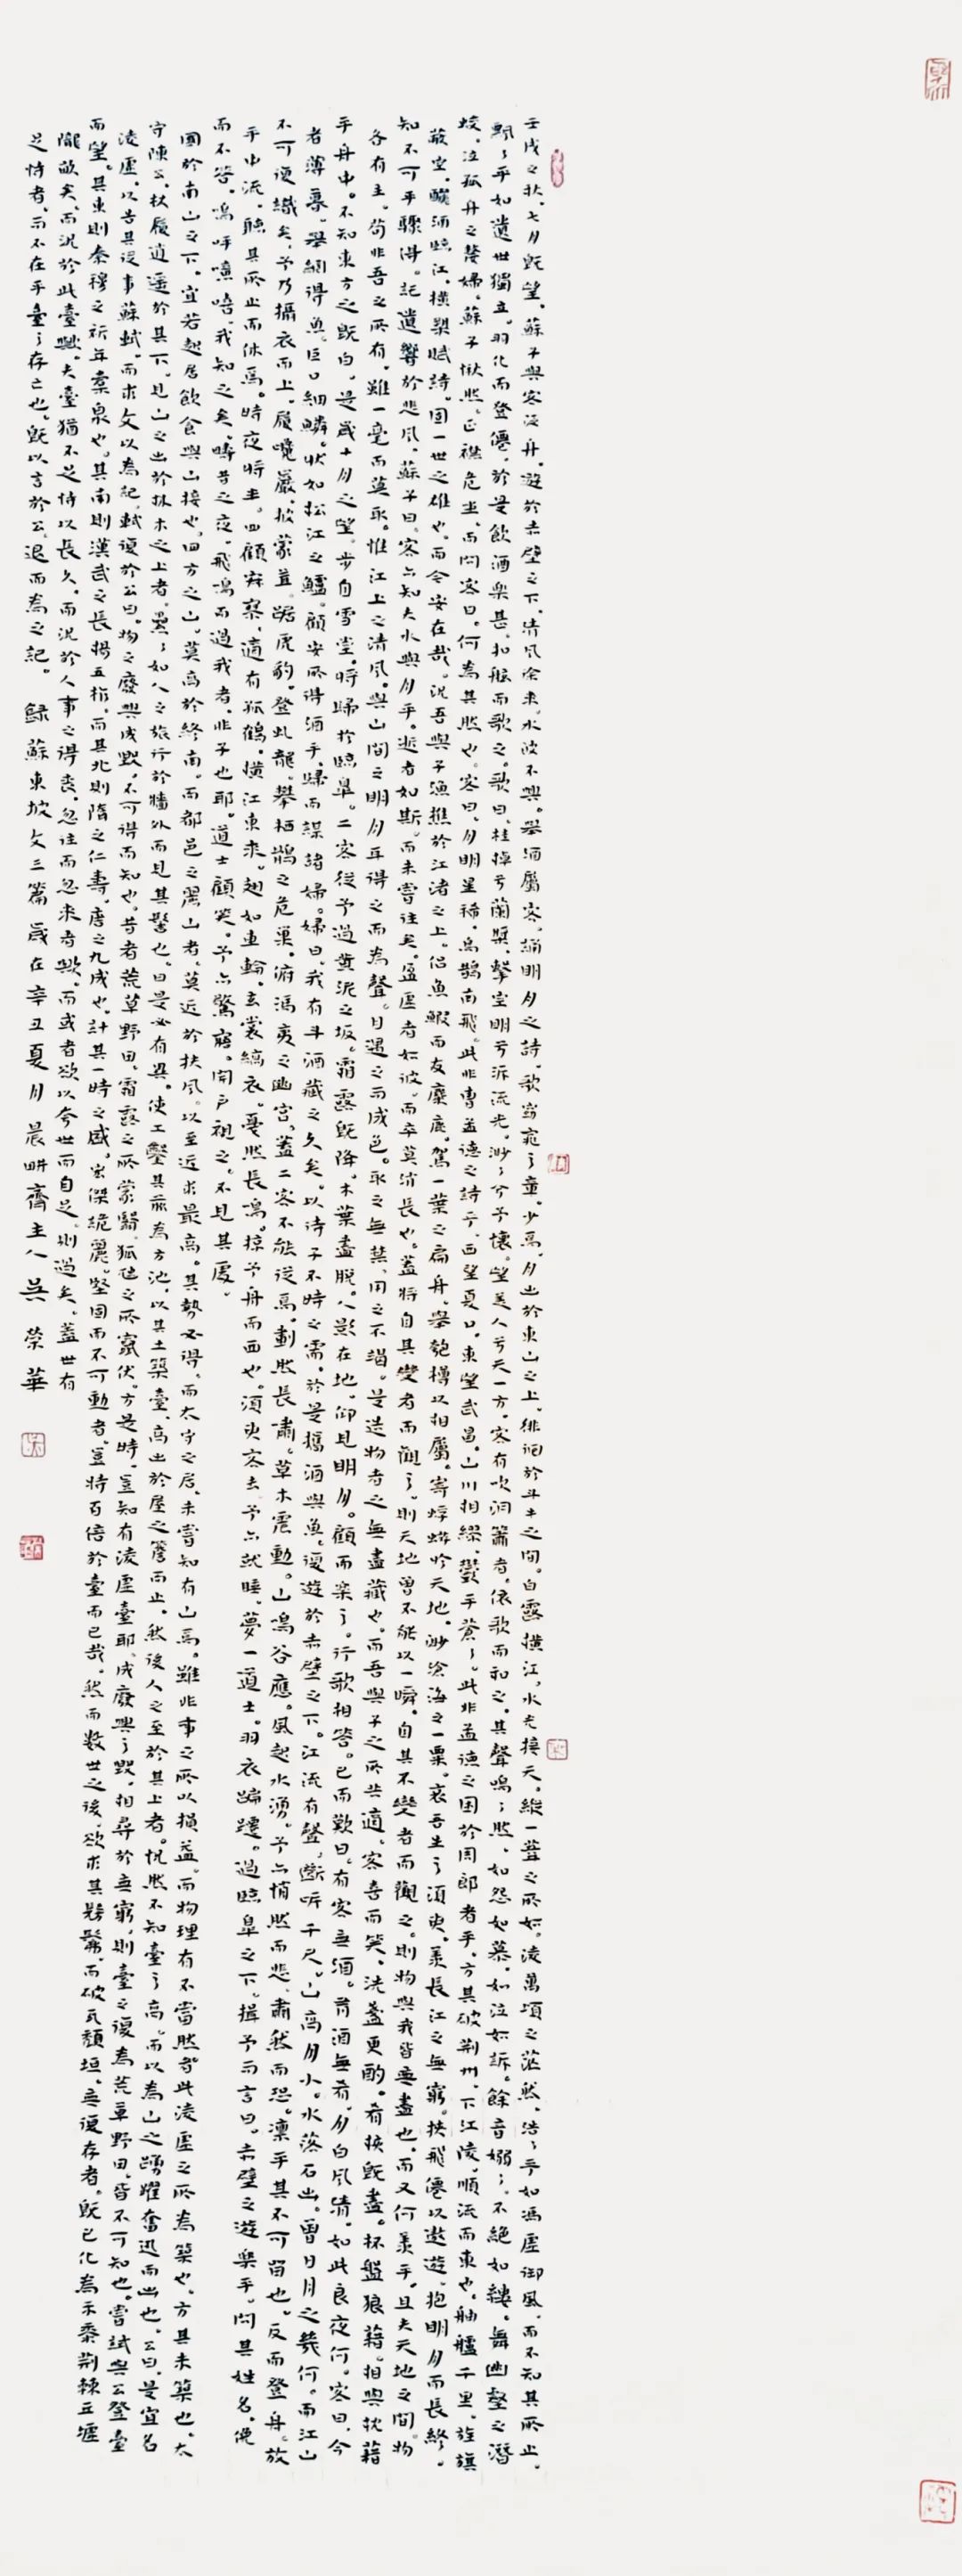 壬戌之秋。七月既望。蘇子與客泛舟。遊於赤壁之下。清風徐來。水波不興。舉酒屬客。誦明月之詩。歌窈窕之章。少焉。月出於東山之上。徘徊於斗牛之間。白露橫江。水光接天。縱一葦之所如。淩萬頃之茫然。浩々乎如馮虛御風。而不知其所止。
飄々乎如遺世獨立。羽化而登僊。於是飲酒樂甚。扣舷而歌之。歌曰。桂棹兮蘭槳。擊空明兮泝流光。渺々兮予懷。望美人兮天一方。客有吹洞簫者。依歌而和之。其聲嗚々然。如怨如慕。如泣如訴。餘音嫋々。不絕如縷。舞幽壑之潛
蛟。泣孤舟之嫠婦。蘇子愀然。正襟危坐。而問客曰。何為其然也。客曰。月明星稀。烏鵲南飛。此非曹孟德之詩乎。西望夏口。東望武昌。山川相繆。鬱乎蒼々。此非孟德之困於周郎者乎。方其破荊州。下江陵。順流而東也。舳艫千里。旌旗
蔽空。釃酒臨江。橫槊賦詩。固一世之雄也。而今安在哉。況吾與子漁樵於江渚之上。侶魚鰕而友麋鹿。駕一葉之扁舟。舉匏樽以相屬。寄蜉蝣於天地。渺滄海之一粟。哀吾生之須臾。羨長江之無窮。挾飛僊以遨遊。抱明月而長終。
知不可乎驟得。託遺響於悲風。蘇子曰。客亦知夫水與月乎。逝者如斯。而未嘗往矣。盈虛者如彼。而卒莫消長也。蓋將自其變者而觀之。則天地曾不能以一瞬。自其不變者而觀之。則物與我皆無盡也。而又何羨乎。且夫天地之間。物
各有主。苟非吾之所有。雖一毫而莫取。惟江上之清風。與山間之明月。耳得之而為聲。目遇之而成色。取之無禁。用之不竭。是造物者之無盡藏也。而吾與子之所共適。客喜而笑。洗盞更酌。肴核既盡。杯盤狼藉。相與枕藉
乎舟中。不知東方之既白。是歲十月之望。步自雪堂。將歸於臨皋。二客從予過黃泥之坂。霜露既降。木葉盡脫。人影在地。仰見明月。顧而樂之。行歌相答。已而歎曰。有客無酒。有酒無肴。月白風清。如此良夜何。客曰。今
者薄暮。舉網得魚。巨口細鱗。狀如松江之鱸。顧安所得酒乎。歸而謀諸婦。婦曰。我有斗酒。藏之久矣。以待子不時之需。於是攜酒與魚。復遊於赤壁之下。江流有聲。斷岸千尺。山高月小。水落石出。曾日月之幾何。而江山
不可復識矣。予乃攝衣而上。履巉巖。披蒙茸。踞虎豹。登虬龍。攀栖鶻之危巢。俯馮夷之幽宮。蓋二客不能從焉。劃然長嘯。草木震動。山鳴谷應。風起水湧。予亦悄然而悲。肅然而恐。凜乎其不可留也。反而登舟。放
乎中流。聽其所止而休焉。時夜將半。四顧寂寥。適有孤鶴。橫江東來。翅如車輪。玄裳縞衣。戛然長鳴。掠予舟而西也。須臾客去。予亦就睡。夢一道士。羽衣蹁躚。過臨皋之下。揖予而言曰。赤壁之遊樂乎。問其姓名。俛
而不答。嗚呼噫嘻。我知之矣。疇昔之夜。飛鳴而過我者。非子也耶。道士顧笑。予亦驚寤。開戶視之。不見其處。
國於南山之下。宜若起居飲食與山接也。四方之山。莫高於終南。而都邑之麗山者。莫近於扶風。以至近求最高。其勢必得。而太守之居。未嘗知有山焉。雖非事之所以損益。而物理有不當然者。此淩虛之所為築也。方其未築也。太
守陳公。杖履逍遙於其下。見山之出於林木之上者。纍々如人之旅行於牆外而見其髻也。曰是必有異。使工鑿其前為方池。以其土築臺。高出於屋之簷而止。然後人之至於其上者。怳然不知臺之高。而以為山之踴躍奮迅而出也。公曰。是宜名
淩虛。以告其從事蘇軾。而求文以為記。軾復於公曰。物之廢興成毀。不可得而知也。昔者荒草野田。霜露之所蒙翳。狐虺之所竄伏。方是時。豈知有淩虛臺耶。成廢興之毀。相尋於無窮。則臺之復為荒草野田。皆不可知也。嘗試與公登臺
而望。其東則秦穆之祈年橐泉也。其南則漢武之長楊五柞。而其北則隋之仁壽。唐之九成也。計其一時之盛。宏傑詭麗。堅固而不可動者。豈特百倍於臺而已哉。然而數世之後。欲求其髣髴。而破瓦頹垣。無復存者。既已化為禾黍荊棘丘墟
隴畝矣。而況於此臺歟。夫臺猶不足恃以長久。而況於人事之得喪。忽往而忽來者歟。而或者欲以夸世而自足。則過矣。蓋世有
足恃者。而不在乎臺之存亡也。既以言於公。退而為之記。 錄蘇東坡文三篇 歲在辛丑夏月 晨畊齋主人 吳榮華